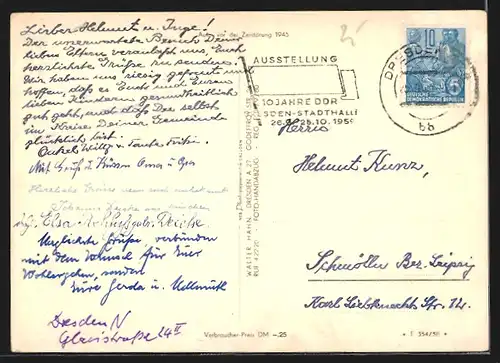 Aufn. vor der Zerstörung 1945
Lieber Helmut u. Inge!
Der unerwartete Besuch Deiner
lieben Eltern veranlaßt uns, Euch
herzlichste Grüße zu senden.
Wir haben uns riesig gefreut und
hoffen, daß es Euch und Euren
lieben Kindern gesundheitlich
gut geht, und daß Du selbst
im Kreise Deiner Gemeinde
glücklich bist.
Onkel Willy u. Tante
Mit Gruß u. Küssen Oma u. Opa
Herzliche Grüße
Elsa
Herzlichste Grüße verbunden
mit dem Wunsch für Euer
Wohlergehen, senden
Eure Gerda u. Hellmuth
Dresden N
Glacisstraße 24 II
WALTER HAHN, DRESDEN A 27
RUF 42220 · FOTO-HANDABZUG
Verbraucher-Preis DM –.25
AUSSTELLUNG
10 JAHRE DDR
DRESDEN-STADTHALLE
25.10.1959
DRESDEN
bb
10
DEUTSCHE
DEMOKRATISCHE REPUBLIK
Herrn
Helmut Kunz,
Schmölln Bez. Leipzig
Karl Liebknecht Str. 12.